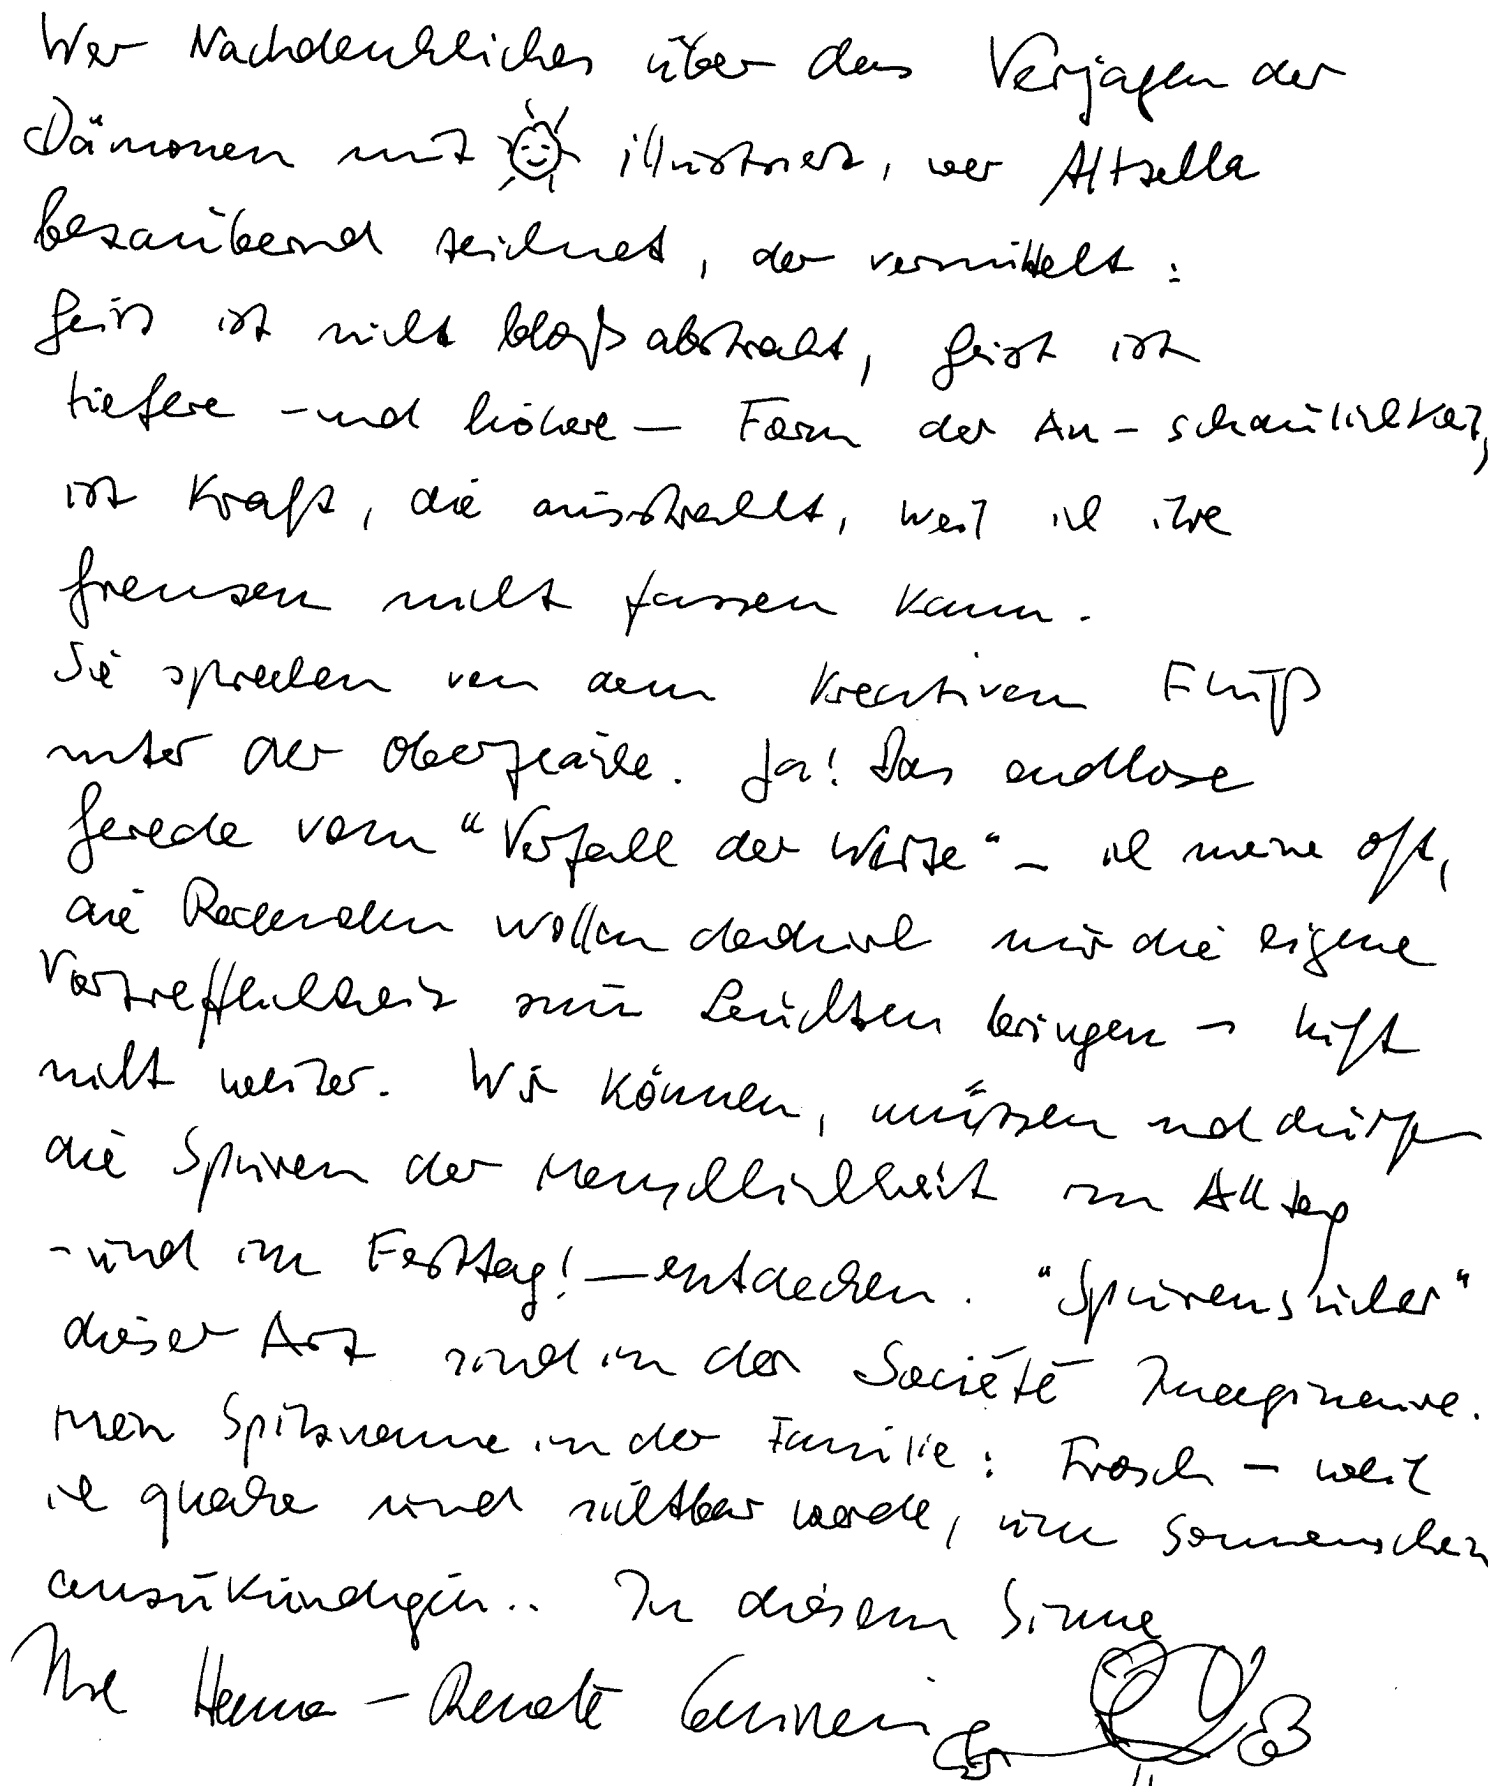 Wer Nachdenkliches über das Verjagen der
Dämonen mit illustriert, wer Altzella
bezaubernd zeichnet, der vermittelt:
Geist ist nicht bloß abstrakt, Geist ist
tiefere - und höhere - Form der An-schaulichkeit,
ist Kraft, die ausstrahlt, weil ich ihre
Grenzen nicht fassen kann.
Sie sprechen von dem kreativen Fluß
unter der Oberfläche. Ja! Das endlose
Gerede vom "Verfall der Werte" - ich meine oft,
die Redenden wollen dadurch nur die eigene
Vortrefflichkeit zum Leuchten bringen - hilft
nicht weiter. Wir können, müssen und dürfen
die Spuren der Menschlichkeit im Alltag
- und im Festtag! - entdecken. "Spurensucher"
dieser Art sind in der Société Imaginaire.
Mein Spitzname in der Familie: Frosch - weil
ich quake und sichtbar werde, um Sonnenschein
anzukündigen.. In diesem Sinne
Ihre Hanna-Renate